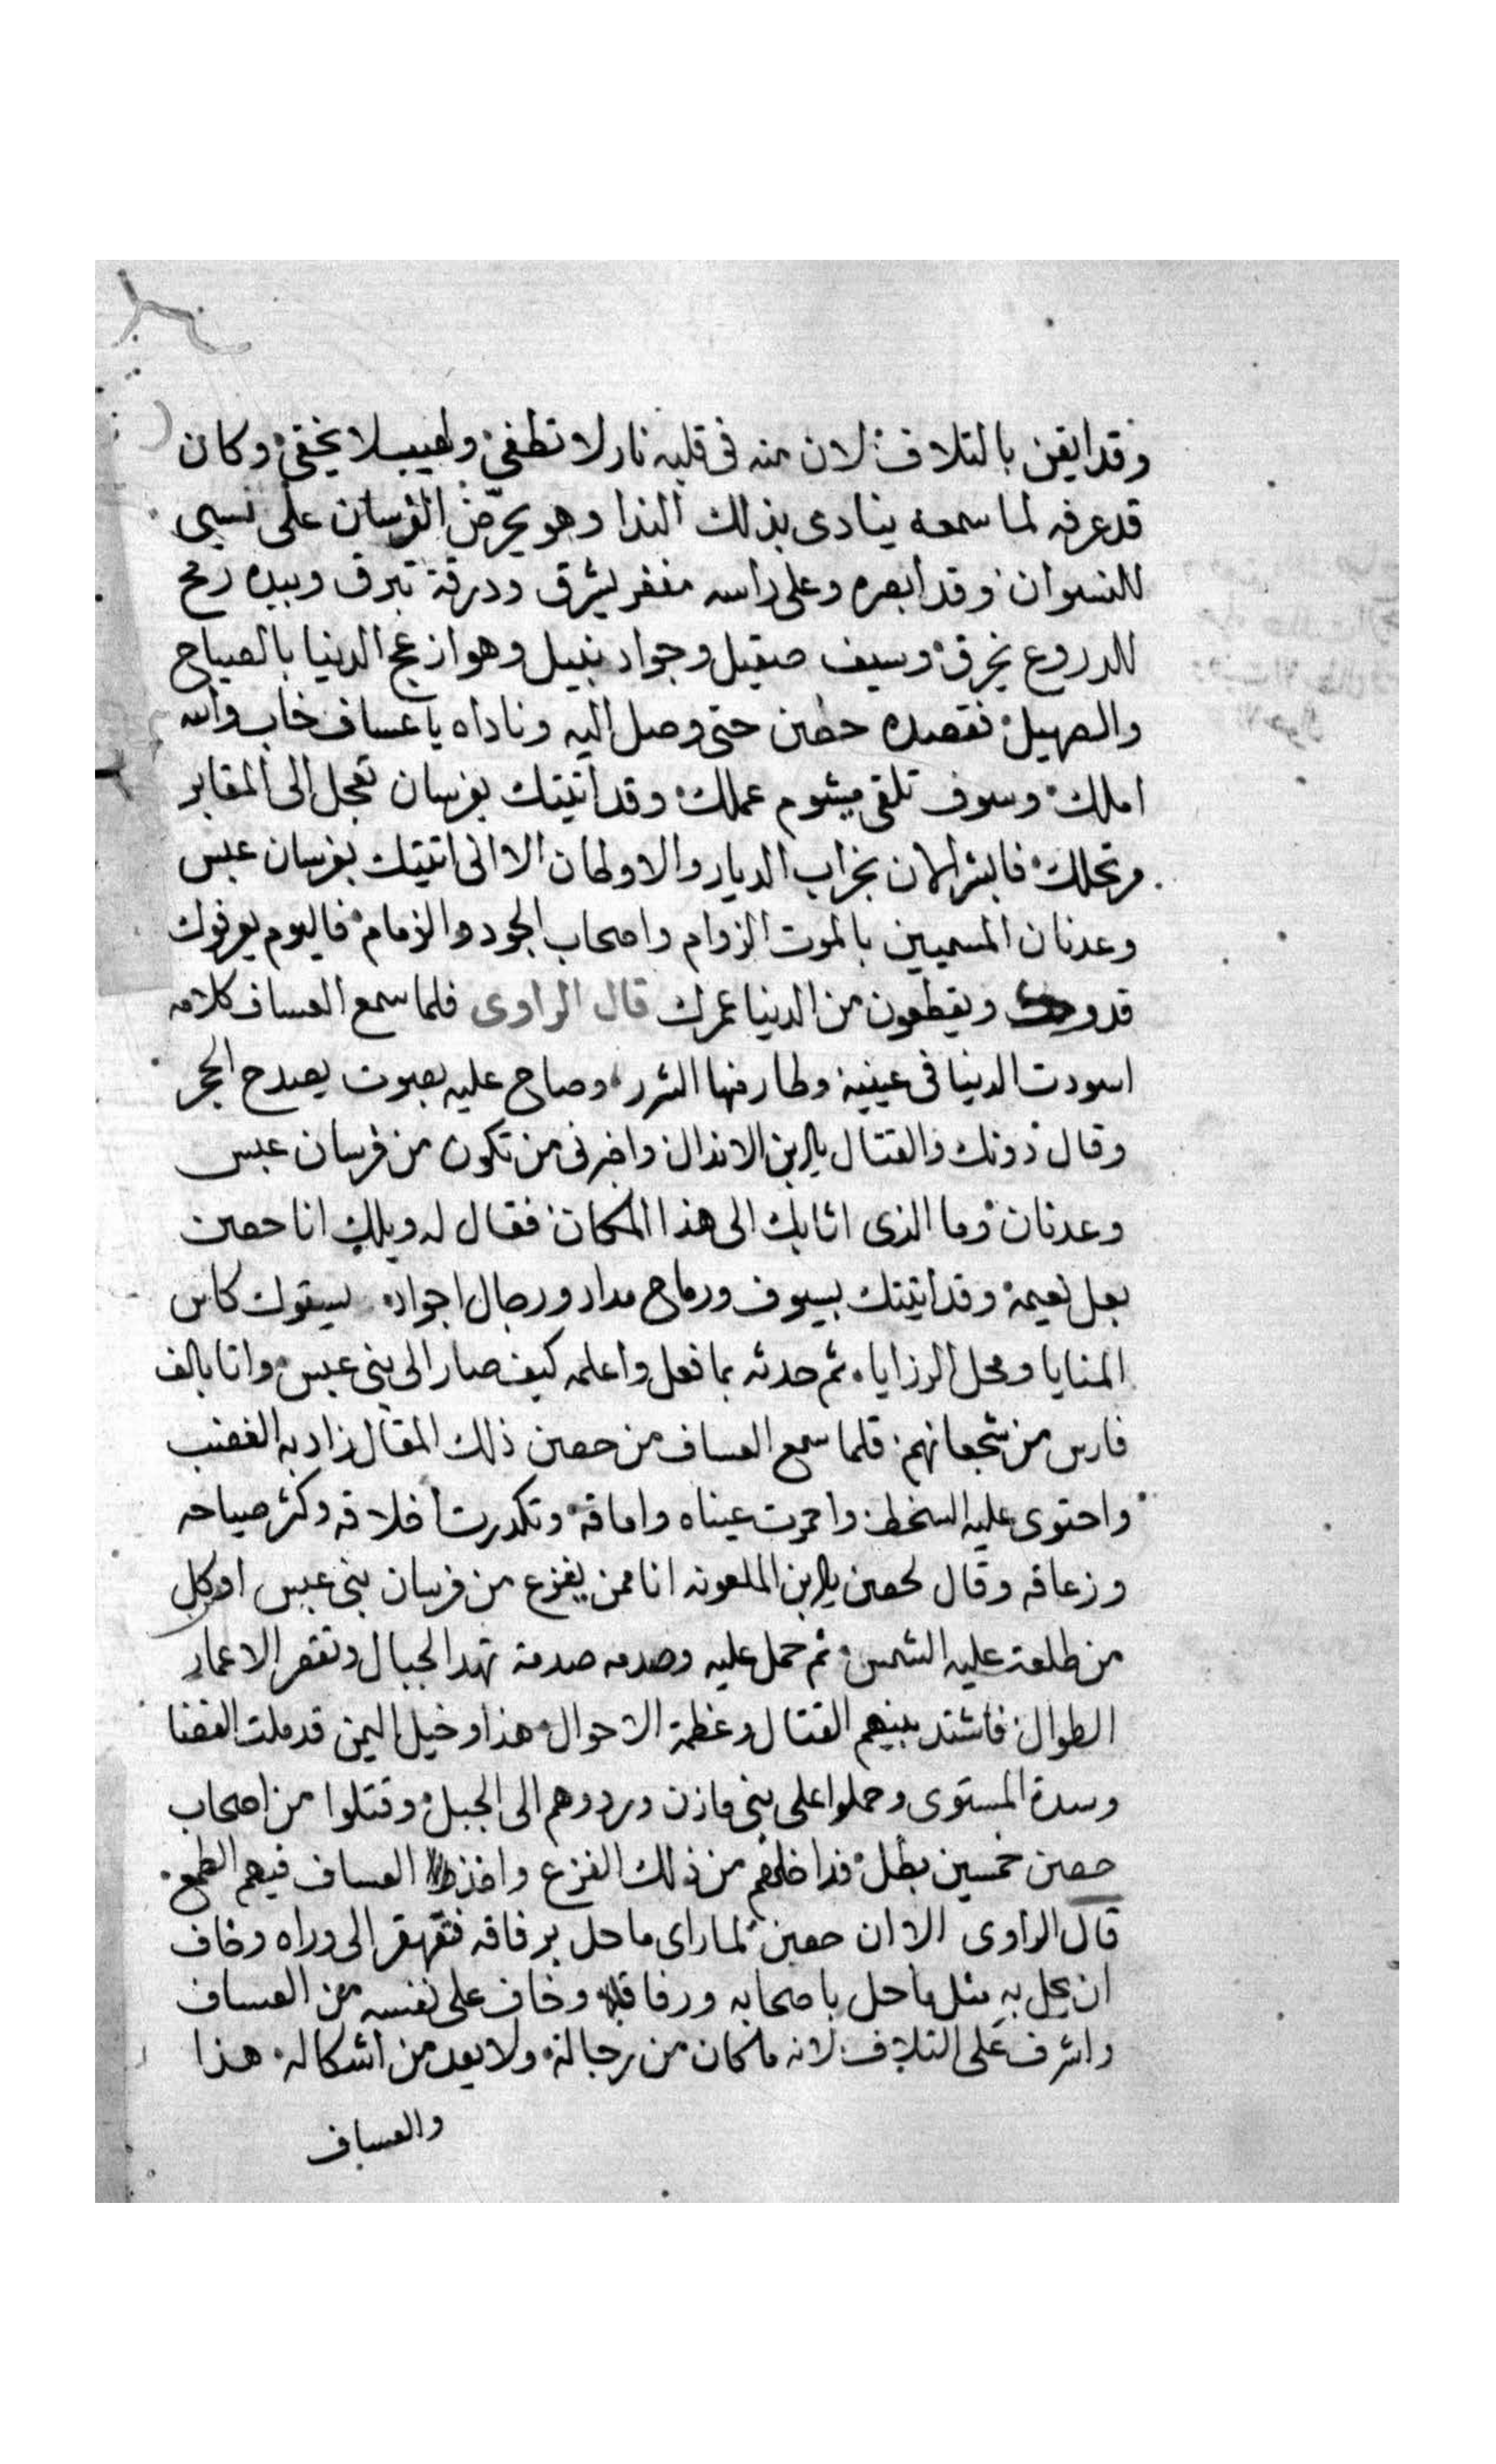 وقد ايقن بالتلاف لان منه فى قلبه نار لا تطفى ولهيب لا يخفى وكان
قد عرفه لما سمعه ينادى بذلك الندا وهو يحرّض الفرسان على سبى
النسوان وقد ابصره وعلى راسه مغفر يشرق ودرقة تبرق وبيده رمح
للدروع يخرق وسيف صقيل وجواد نبيل وهو ازعج الدنيا بالصياح
والصهيل فقصده حصين حتى وصل اليه وناداه يا عساف خاب والله
املك وسوف تلقى ميشوم عملك وقد اتيتك بفرسان تعجل الى المقابر
مرتحلك فابشر الان بخراب الديار والاوطان الا انى اتيتك بفرسان عبس
وعدنان المسميين بالموت الزوام واصحاب الجود والزمام فاليوم يعرفوك
قدرك ويقطعون من الدنيا عمرك قال الراوى فلما سمع العساف كلامه
اسودت الدنيا فى عينيه وطار منها الشرر وصاح عليه بصوت يصدح الحجر
وقال دونك والقتال يا ابن الاندال واخبرنى من تكون من فرسان عبس
وعدنان وما الذى اتا بك الى هذا المكان فقال له ويلك انا حصين
بعل نعيمة وقد اتيتك بسيوف ورماح مداد ورجال اجواد يسقوك كاس
المنايا ومحل الرزايا ثم حدثه بما فعل واعلمه كيف صار الى بنى عبس واتا بالف
فارس من شجعانهم فلما سمع العساف من حصين ذلك المقال زاد به الغضب
واحتوى عليه السخط واحمرت عيناه واماقه وتكدرت اخلاقه وكثر صياحه
وزعاقه وقال لحصين يا ابن الملعونه انا ممن يفزع من فرسان بنى عبس او كل
من طلعت عليه الشمس ثم حمل عليه وصدمه صدمة تهد الجبال وتقصر الاعمار
الطوال فاشتد بينهم القتال وعظمة الاحوال هذا وخيل اليمن قد ملت الفضا
وسدة المستوى وحملوا على بنى مازن وردوهم الى الجبل وقتلوا من اصحاب
حصين خمسين بطل فداخلهم من ذلك الفزع واخذ العساف فيهم الطمع
قال الراوى الا ان حصين لما راى ما حل برفاقه فتقهقر الى وراه وخاف
ان يحل به مثل ما حل باصحابه ورفاقه وخاف على نفسه من العساف
واشرف على التلاف لانه ما كان من رجاله ولا يعد من اشكاله هذا
والعساف